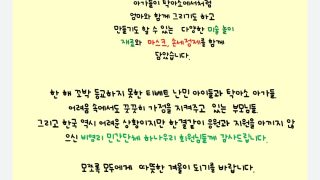 아가들이 탁아소에서처럼
엄마와 함께 그리기도 하고
만들기도 할 수 있는 다양한 미술 놀이
재료와 마스크, 손세정제를 함께
담았습니다.
한 해 꼬박 등교하지 못한 티베트 난민 아이들과 탁아소 아가들.
어려움 속에서도 꿋꿋히 가정을 지켜주고 있는 부모님들.
그리고 한국 역시 어려운 상황이지만 한결같이 응원과 지원을 아끼지 않
으신 비영리 민간단체 하나우리 회원님들께 감사드립니다.
모쪼록 모두에게 따뜻한 겨울이 되기를 바랍니다.